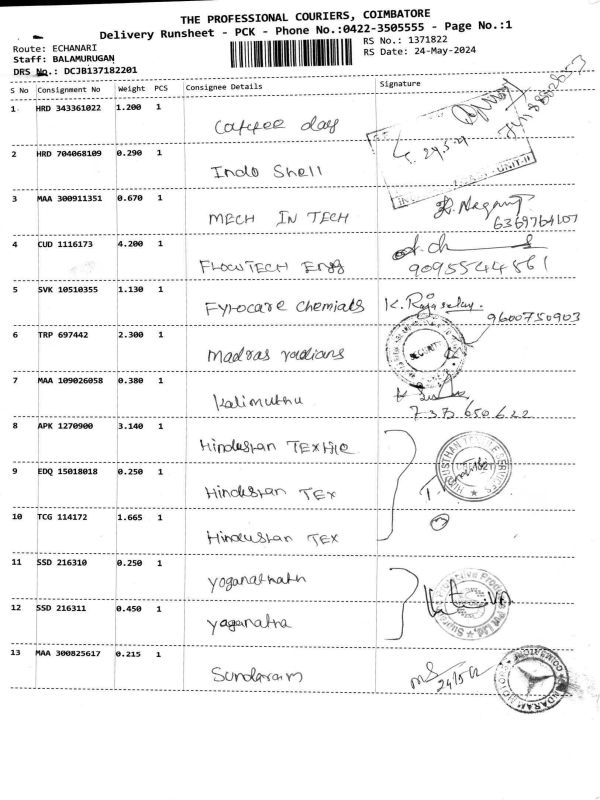 THE PROFESSIONAL COURIERS, COIMBATORE
Delivery Runsheet - PCK - Phone No.:0422-3505555 - Page No.:1
Route: ECHANARI RS No.: 1371822
Staff: BALAMURUGAN RS Date: 24-May-2024
DRS No.: DCJB137182201
S No Consignment No Weight PCS Consignee Details Signature
1 HRD 343361022 1.200 1 Coffee day
24.5.24
UNIT-II
2 HRD 704068109 0.290 1 Indo Shell
3 MAA 300911351 0.670 1 MECH IN TECH
6369764107
4 CUD 1116173 4.200 1 FLOWTECH Engg
9095544861
5 SVK 10510355 1.130 1 Fyrocare Chemicals K. Rajaselay.
9600750903
6 TRP 697442 2.300 1 Madras radians
SECURITY
7 MAA 109026058 0.380 1 Kalimuthu
8 APK 1270900 3.140 1 Hindustan TEXtile
9 EDQ 15018018 0.250 1 Hindustan TEX
10 TCG 114172 1.665 1 Hindustan TEX
11 SSD 216310 0.250 1 yoganathatn
12 SSD 216311 0.450 1 yaganatha
13 MAA 300825617 0.215 1 Sundaram